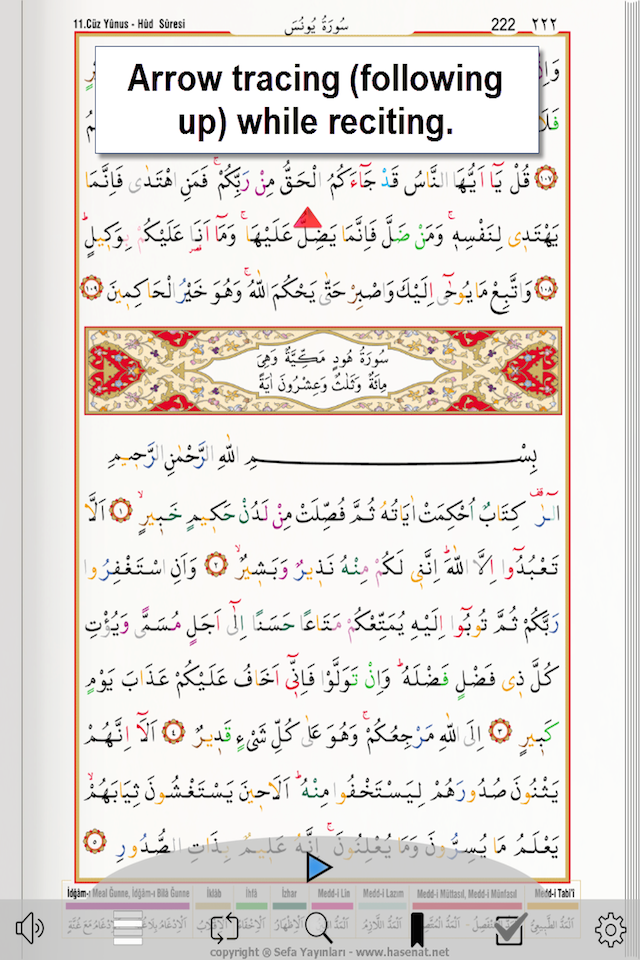 11.Cüz Yûnus - Hûd Sûresi سُورَةُ يُونُسَ 222 ٢٢٢
Arrow tracing (following
up) while reciting.
١٠٧ قُلْ يَٓا اَيُّهَا النَّاسُ قَدْ جَٓاءَكُمُ الْحَقُّ مِنْ رَبِّكُمْۚ فَمَنِ اهْتَدٰى فَاِنَّمَا
يَهْتَدٖى لِنَفْسِهٖۚ وَمَنْ ضَلَّ فَاِنَّمَا يَضِلُّ عَلَيْهَاۚ وَمَٓا اَنَا۬ عَلَيْكُمْ بِوَكٖيلٍؕ
١٠٨ وَاتَّبِعْ مَا يُوحٰٓى اِلَيْكَ وَاصْبِرْ حَتّٰى يَحْكُمَ اللّٰهُۚ وَهُوَ خَيْرُ الْحَاكِمٖينَ ١٠٩
سُورَةُ هُودٍ مَكِّيَّةٌ وَهِىَ
مِائَةٌ وَثَلٰثٌ وَعِشْرُونَ اٰيَةً
بِسْمِ اللّٰهِ الرَّحْمٰنِ الرَّحٖيمِ
الٓرٰ قف كِتَابٌ اُحْكِمَتْ اٰيَاتُهُ ثُمَّ فُصِّلَتْ مِنْ لَدُنْ حَكٖيمٍ خَبٖيرٍۙ ١ اَلَّا
تَعْبُدُٓوا اِلَّا اللّٰهَؕ اِنَّنٖى لَكُمْ مِنْهُ نَذٖيرٌ وَبَشٖيرٌۙ ٢ وَاَنِ اسْتَغْفِرُوا
رَبَّكُمْ ثُمَّ تُوبُٓوا اِلَيْهِ يُمَتِّعْكُمْ مَتَاعًا حَسَنًا اِلٰٓى اَجَلٍ مُسَمًّى وَيُؤْتِ
كُلَّ ذٖى فَضْلٍ فَضْلَهُؕ وَاِنْ تَوَلَّوْا فَاِنّٖٓى اَخَافُ عَلَيْكُمْ عَذَابَ يَوْمٍ
كَبٖيرٍ ٣ اِلَى اللّٰهِ مَرْجِعُكُمْۚ وَهُوَ عَلٰى كُلِّ شَىْءٍ قَدٖيرٌ ٤ اَلَٓا اِنَّهُمْ
يَثْنُونَ صُدُورَهُمْ لِيَسْتَخْفُوا مِنْهُؕ اَلَا حٖينَ يَسْتَغْشُونَ ثِيَابَهُمْۙ
يَعْلَمُ مَا يُسِرُّونَ وَمَا يُعْلِنُونَۚ اِنَّهُ عَلٖيمٌ بِذَاتِ الصُّدُورِ ٥
İdğâm-ı Meal Ğunne, İdğâm-ı Bilâ Ğunne İklâb İhfâ İzhar Medd-i Lin Medd-i Lazım Medd-i Müttasıl, Medd-i Münfasıl Medd-i Tabi'i
copyright @ Sefa Yayınları - www.hasenat.net